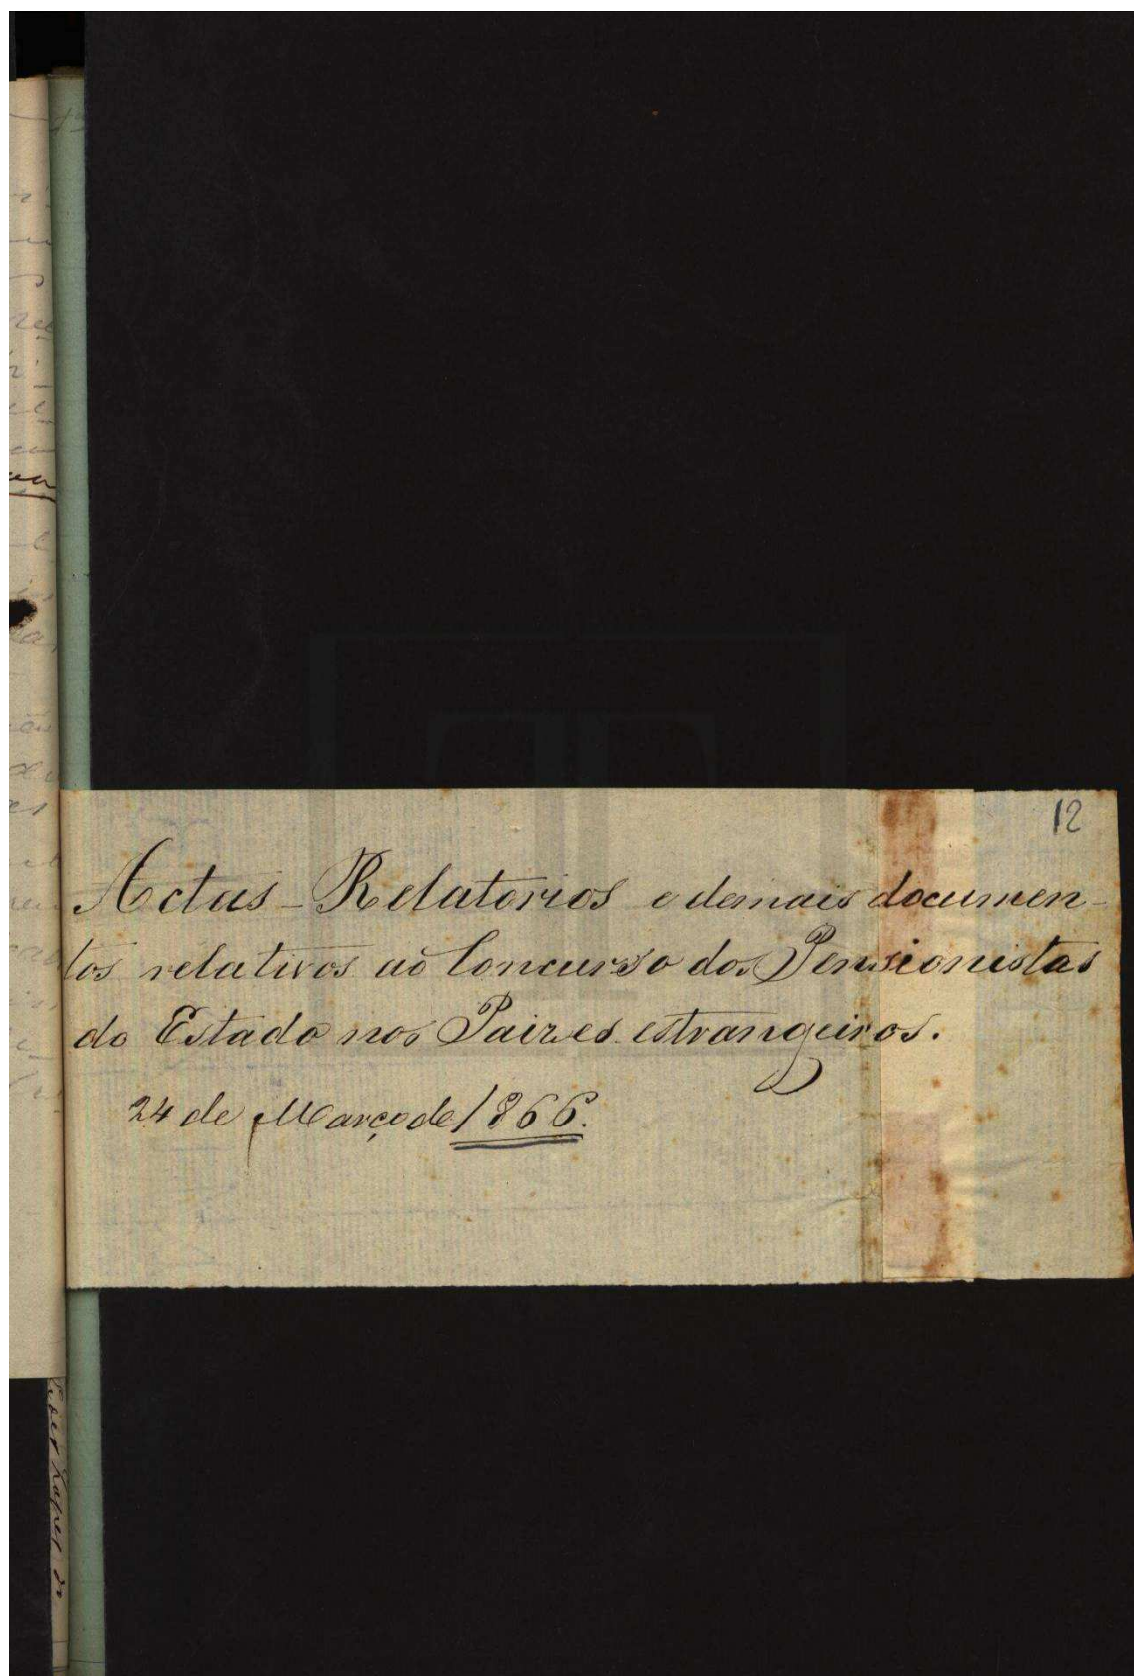 12
Actas - Relatorios e demais documen-
tos relativos ao Concurso dos Pensionistas
do Estado nos Paizes estrangeiros.
24 de Março de 1866.